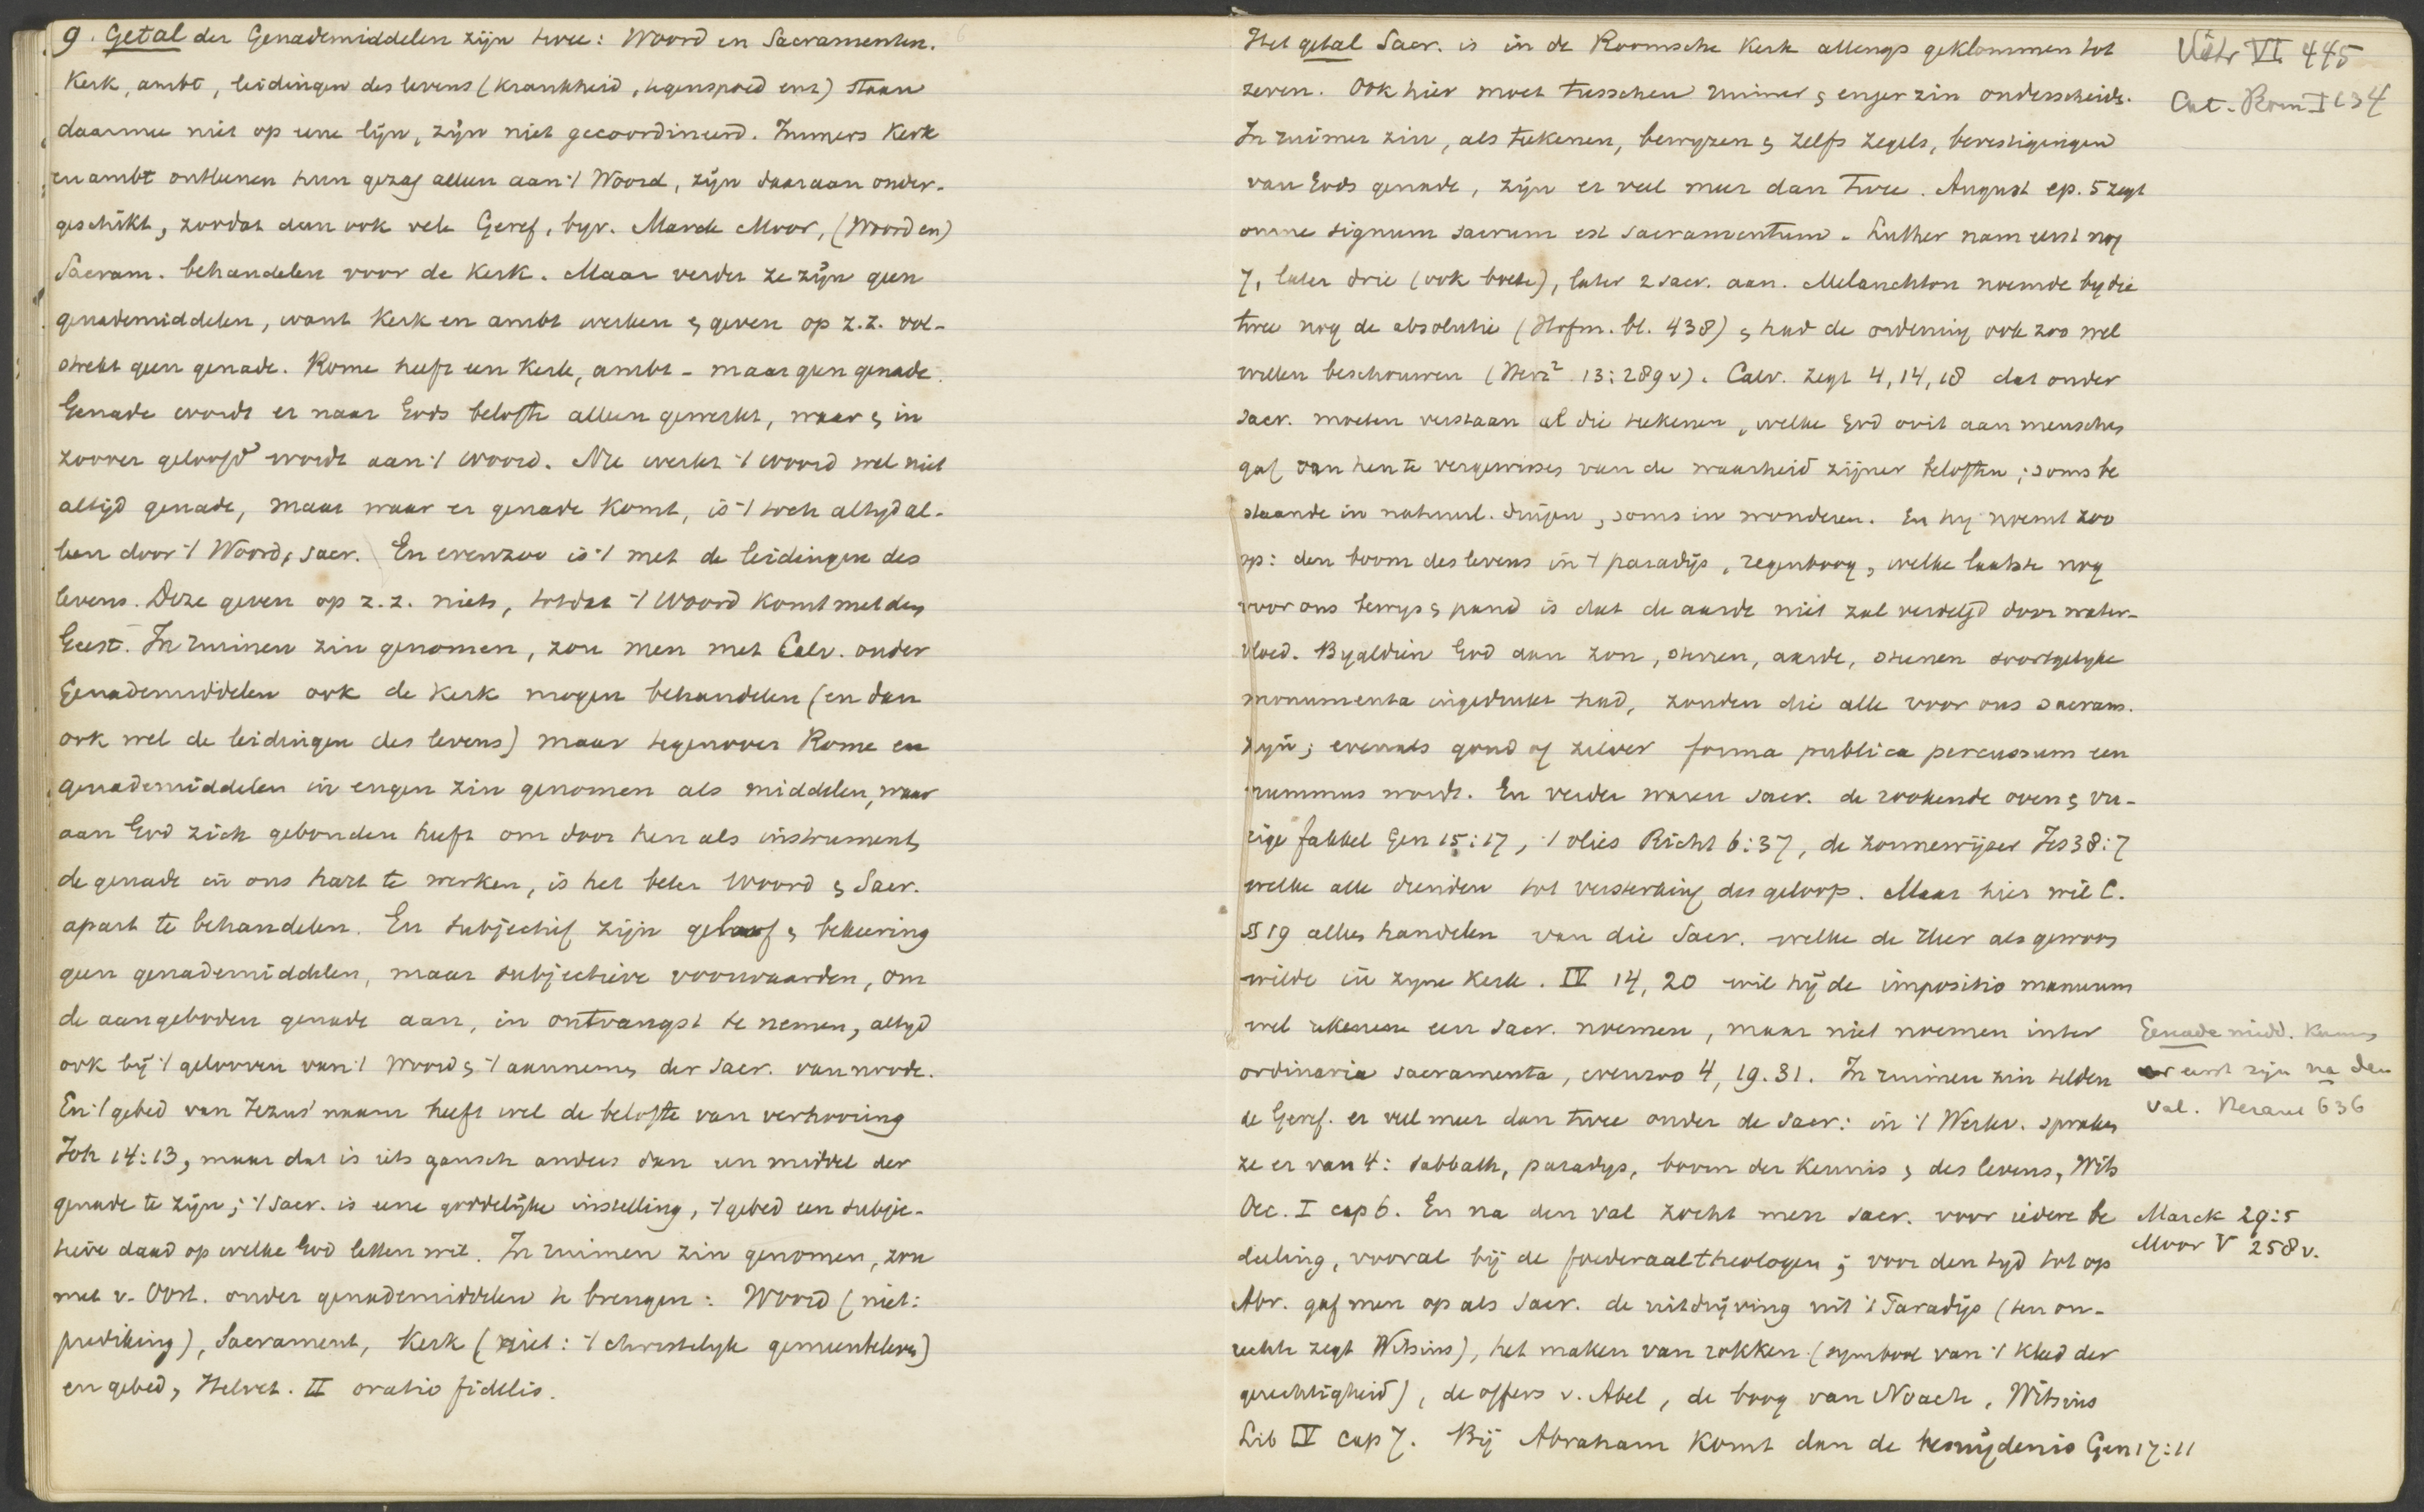 9. Getal der Genademiddelen zijn twee: Woord en Sacramenten.
Kerk, ambt, leidingen des levens (krankheid, tegenspoed enz) staan
daarmee niet op eene lijn, zijn niet gecoordineerd. Immers Kerk
en ambt ontleenen hun gezag alleen aan 't Woord, zijn daaraan onder-
geschikt, zoodat dan ook vele Geref, bijv. Marck Moor, (Woord en)
Sacram. behandelen voor de Kerk. Maar verder ze zijn geen
genademiddelen, want Kerk en ambt werken & geven op z.z. vol-
strekt geen genade. Rome heeft een Kerk, ambt - maar geen genade.
Genade wordt er naar Gods belofte alleen gewerkt, waar & in
zoover geloofd wordt aan 't Woord. Nu werkt 't Woord wel niet
altijd genade, maar waar er genade komt, is 't toch altijd al-
leen door 't Woord, sacr. En evenzoo is 't met de leidingen des
levens. Deze geven op z.z. niets, totdat 't Woord komt met den
Geest. In ruimen zin genomen, zou men met Calv. onder
Genademiddelen ook de Kerk mogen behandelen (en dan
ook wel de leidingen des levens) maar tegenover Rome en
genademiddelen in engen zin genomen als middelen, waar
aan God zich gebonden heeft om door hen als instrument,
de genade in ons hart te werken, is het beter Woord & Sacr.
apart te behandelen. En subjectief zijn geloof & bekeering
geen genademiddelen, maar subjectieve voorwaarden, om
de aangeboden genade aan, in ontvangst te nemen, altijd
ook bij 't gelooven van 't Woord & 't aannemen der Sacr. van noode.
En 't gebed van Jezus' naam heeft wel de belofte van verhooring
Joh 14:13, maar dat is iets gansch anders dan een middel der
genade te zijn; 't sacr. is eene goddelijke instelling, 't gebed een subjec-
tieve daad op welke God letten wil. In ruimen zin genomen, zou
met v. Oost. onder genademiddelen te brengen: Woord (niet:
prediking), Sacrament, Kerk (niet: 't christelijk gemeenteleven)
en gebed, Helvet. II oratio fidelis.
Het getal Sacr. is in de Roomsche Kerk allengs geklommen tot
zeven. Ook hier moet tusschen ruimer & enger zin onderscheide.
In ruimer zin, als teekenen, bewijzen & zelfs zegels, bevestigingen
van Gods genade, zijn er veel meer dan twee. August ep. 5 zegt
omne signum sacrum est sacramentum. Luther nam eerst nog
7, later drie (ook boete), later 2 sacr. aan. Melanchton noemde bij die
twee nog de absolutie (Hofm. bl. 438) & had de ordening ook zoo wel
willen beschouwen (Herz² 13:289v). Calv. zegt 4, 14, 18 dat onder
sacr. moeten verstaan al die teekenen, welke God ooit aan menschen
gaf om hen te vergewissen van de waarheid zijner beloften; soms be
staande in natuurl. dingen, soms in wonderen. En hij noemt zoo
op: den boom des levens in 't paradijs, regenboog, welke laatste nog
voor ons bewijs & pand is dat de aarde niet zal verdelgd door water-
vloed. Bijaldien God aan zon, sterren, aarde, steenen soortgelijke
monumenta ingedrukt had, zouden die alle voor ons sacram.
zijn; evenals goud of zilver forma publica percussum een
nummus wordt. En verder waren sacr. de rookende oven & vu-
rige fakkel Gen 15:17, 't vlies Richt 6:37, de zonnewijzer Jes 38:7
welke alle dienden tot versterking des geloofs. Maar hier wil C.
§ 19 alleen handelen van die Sacr. welke de Heer als gewoon
wilde in zijne Kerk. IV 14, 20 wil hij de impositio manuum
wel een sacr. noemen, maar niet noemen inter
ordinaria sacramenta, evenzoo 4, 19. 31. In ruimen zin telden
de Geref. er veel meer dan twee onder de Sacr: in 't Werkv. spraken
ze er van 4: Sabbath, paradijs, boom der kennis & des levens, Wits
Oec. I cap 6. En na den val zocht men sacr. voor iedere be
deeling, vooral bij de foederaaltheologen; voor den tijd tot op
Abr. gaf men op als Sacr. de uitdrijving uit 't Paradijs (ten on-
rechte zegt Witsius), het maken van rokken (symbool van 't kleed der
gerechtigheid), de offers v. Abel, de boog van Noach, Witsius
Lib IV cap 7. Bij Abraham komt dan de besnijdenis Gen 17:11
Voetr VI 445
Cat. Rom I C 3 4
Genademidd. kunnen
er eerst zijn na den
val. 636
Marck 29:5
Moor V 258v.